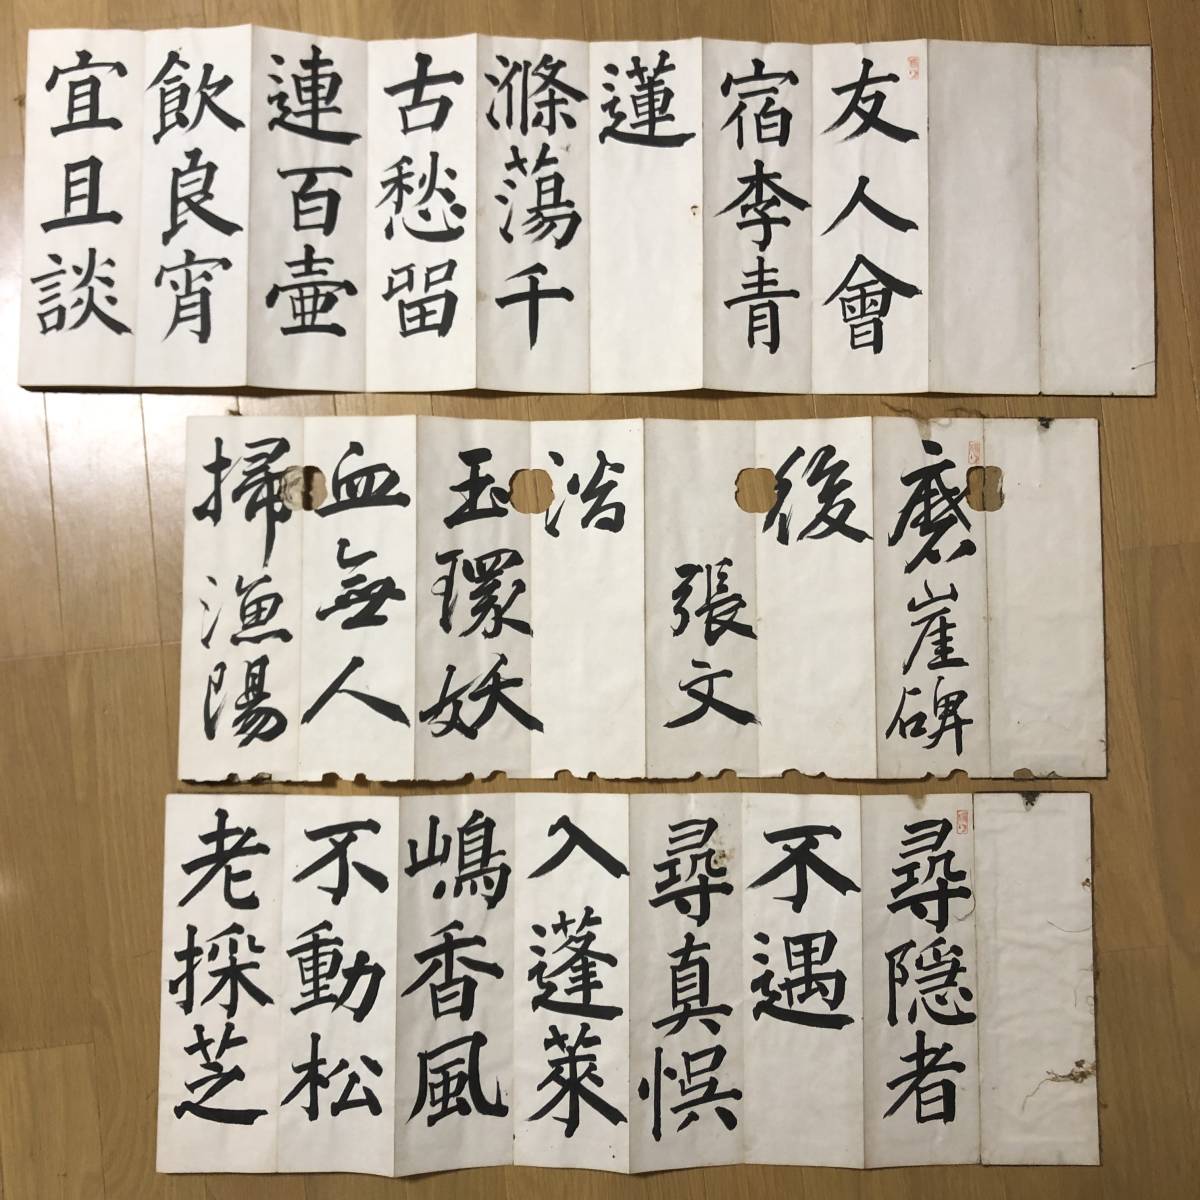 友人會
宿李青
蓮
滌蕩千
古愁留
連百壷
飲良宵
宜且談
磨崖碑
後
張文
潜
玉環妖
血無人
掃漁陽
尋隠者
不遇
尋真悞
入蓬莱
嶋香風
不動松
老採芝